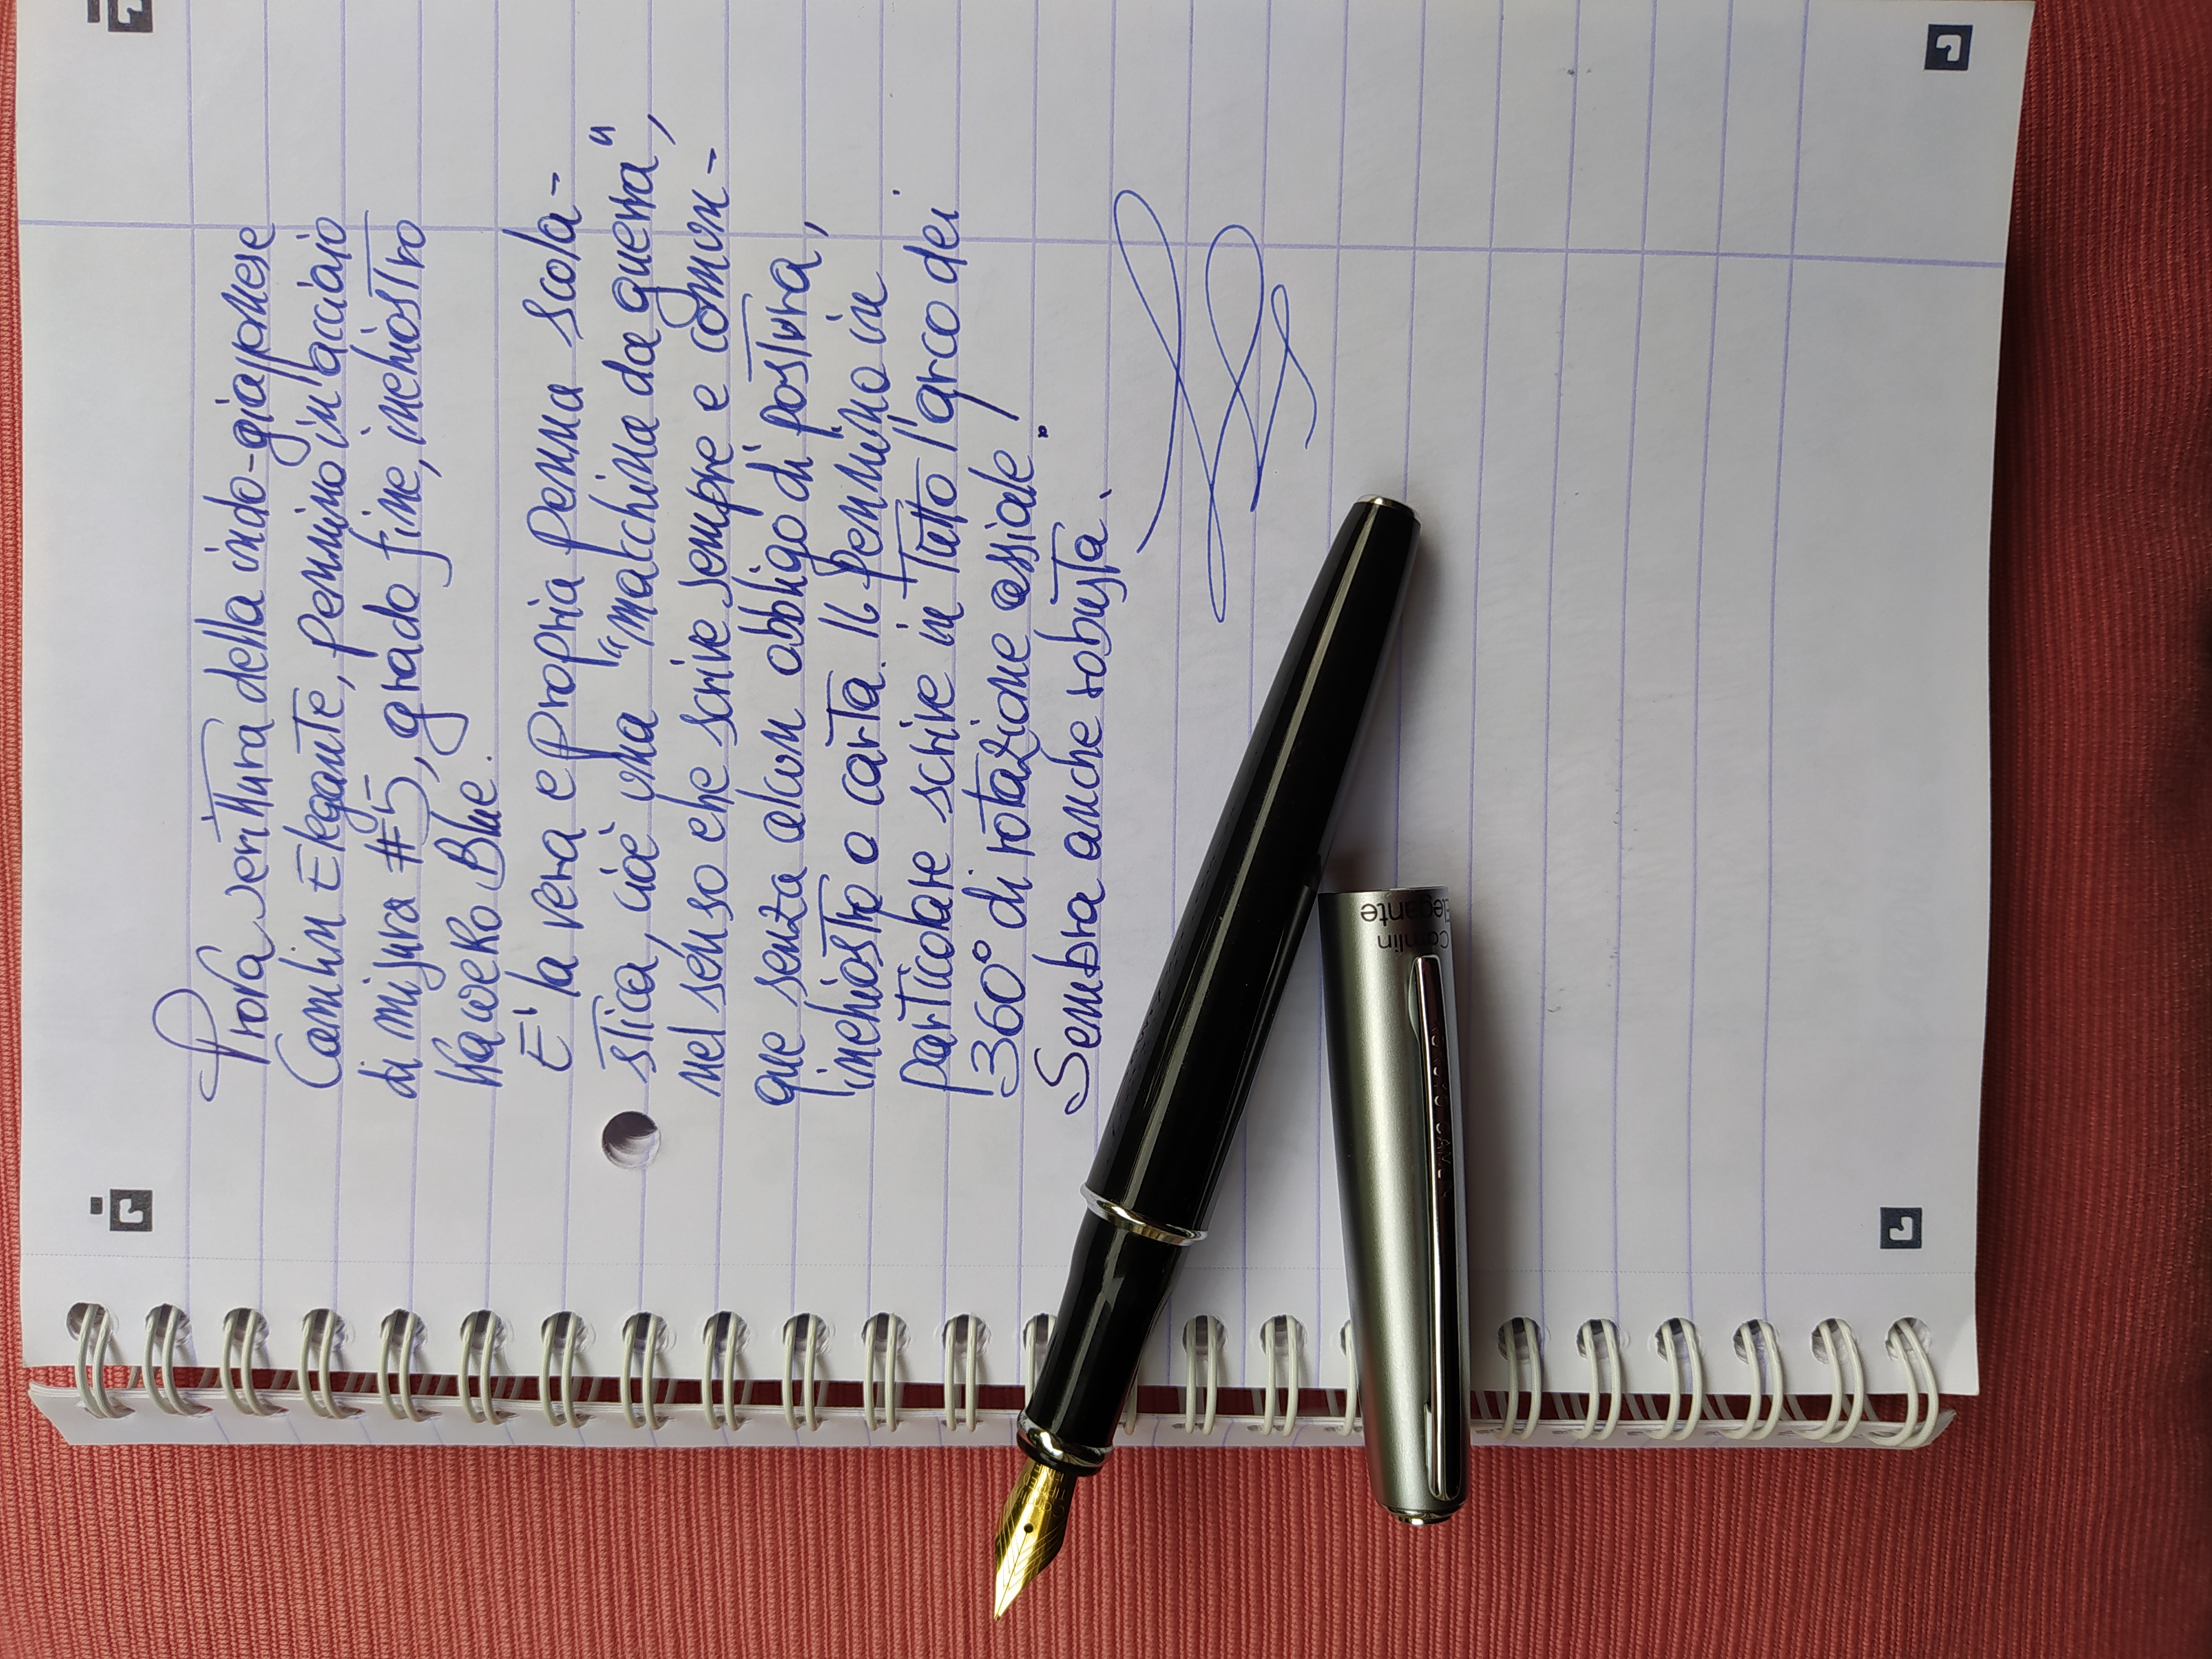 Prova scrittura della indo-giapponese
Camlin Elegante, pennino in acciaio
di misura #5, grado fine, inchiostro
Kaweko Blue.
E' la vera e propria penna scola-
stica, cioè una "macchina da guerra",
nel senso che scrive sempre e comun-
que senza alcun obbligo di postura,
inchiostro o carta. Il pennino in
particolare scrive in tutto l'arco dei
360° di rotazione assiale!
Sembra anche robusta.
Camlin
Elegante